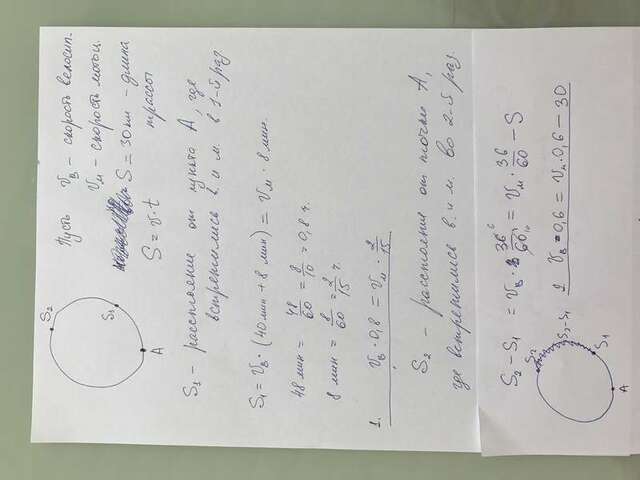 Пусть v_в – скорость велосип.
v_м – скорость мотоц.
S = 30 км – длина
трассы
S = v·t
S₂
S₁
A
S₁ – расстояние от пункта A где
встретились в. и м. в 1-й раз
S₁ = v_в · (40 мин + 8 мин) = v_м · 8 мин.
48 мин = 48/60 = 8/10 = 0,8 ч.
8 мин = 8/60 = 2/15 ч.
1. v_в · 0,8 = v_м · 2/15
S₂ – расстояние от точки A,
где встретились в. и м. во 2-й раз.
S₂ – S₁ = v_в · 36/60 = v_м · 36/60 – S
2. v_в · 0,6 = v_м · 0,6 – 30
S₂
S₂-S₁
S₁
A